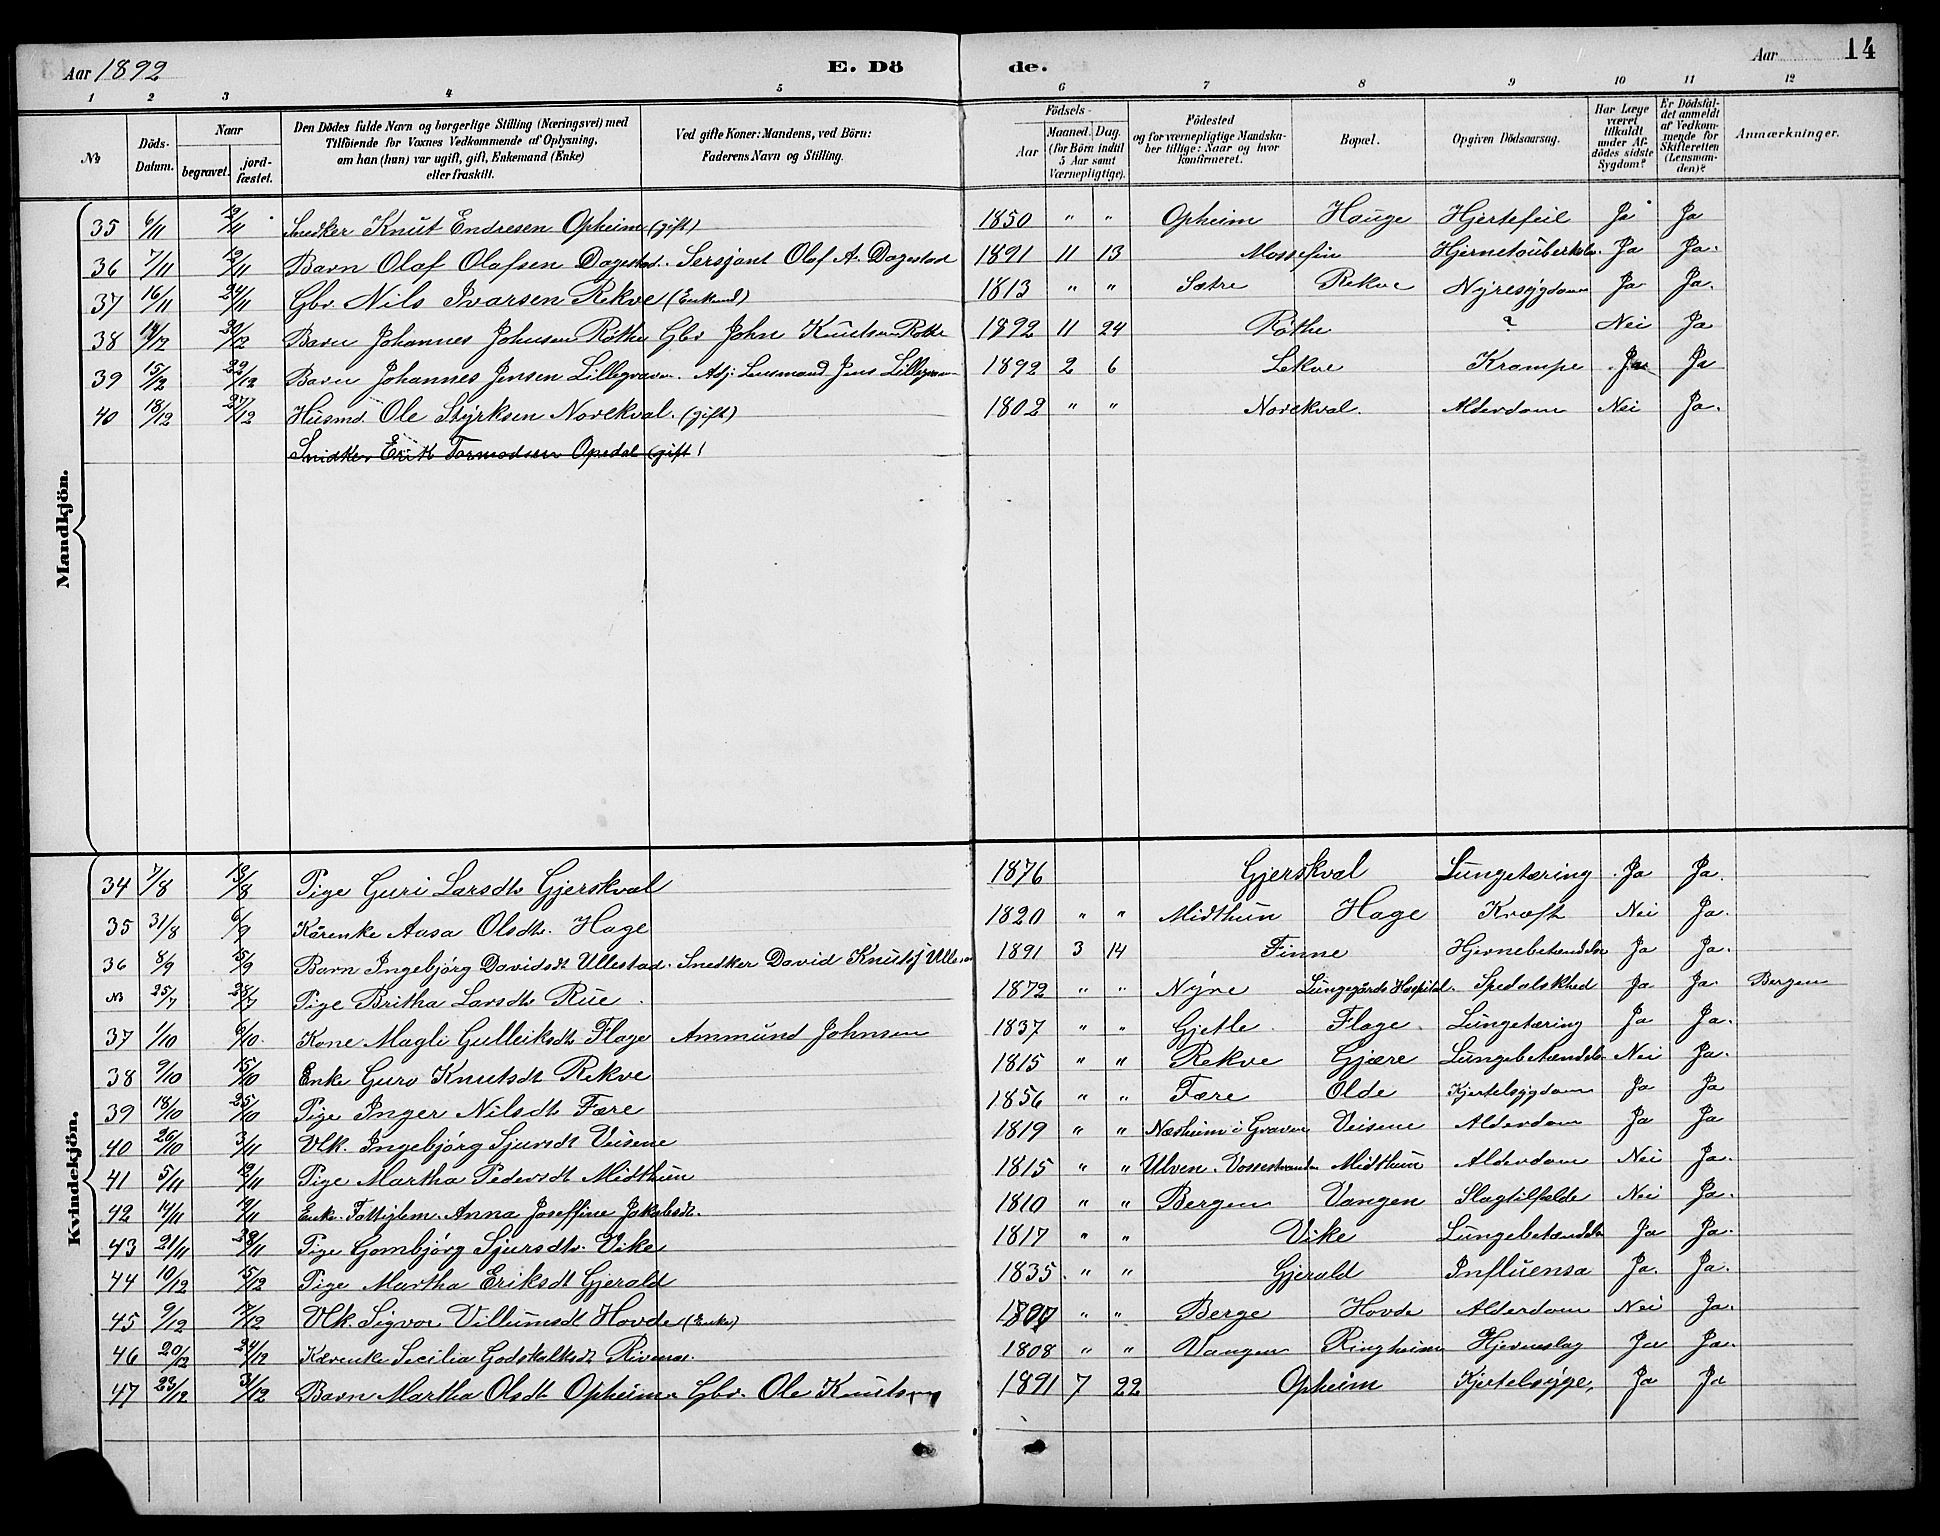 Aar 1892 E. Dö de. Aar 14
1 2 3 4 5 6 7 8 9 10 11 12
No
Döds-Datum.
Naar
begravet. jordfæstet.
Den Dödes fulde Navn og borgerlige Stilling (Næringsvei) med
Tilföiende for Voxnes Vedkommende af Oplysning,
om han (hun) var ugift, gift, Enkemand (Enke)
eller fraskilt.
Ved gifte Koner: Mandens, ved Börn:
Faderens Navn og Stilling.
Födsels-
Aar
Maaned. Dag.
(for Börn indtil
5 Aar samt
Værnepligtige).
Födested
og for værnepligtige Mandska-
ber tillige: Naar og hvor
konfirmeret.
Bopæl.
Opgiven Dödsaarsag.
Har Læge
været
tilkaldt
under Af-
dödes sidste
Sygdom?
Er Dödsfal-
det anmeldt
af Vedkom-
mende for
Skifteretten
(Lensman-
den)?
Anmærkninger.
Mandkjön.
35 6/11 12/11 Snedker Knut Endresen Opheim (gift) 1850 " " Opheim Hauge Hjertefeil Ja Ja
36 7/11 12/11 Barn Olaf Olafsen Dagestad. Sersjant Olaf A. Dagestad 1891 11 13 Mossefin Ja Ja.
37 16/11 24/11 Gbr. Nils Ivarsen Rekve (Enkemd) 1813 " " Sætre Rekve Nyresygdom Ja Ja.
38 Barn Johannes Johnsen Röthe Gbr John Knutsen Röthe 1892 11 24 Röthe ? Nei Ja
39 15/12 22/12 Barn Johannes Jensen Lillegraven. Adj: Lensmand Jens Lillegraven 1892 2 6 Lekve Krampe Ja Ja
40 18/12 27/12 Husmd. Ole Styrksen Norekval. (gift) 1802 " " Norekval. Alderdom Nei Ja.
Snidker Erik Tormodsen Opedal (gift)
Kvindekjön.
34 7/8 13/8 Pige Guri Larsdtr Gjerskval 1876 Gjerskval Lungetæring Ja Ja.
35 31/8 6/9 Kårenke Aasa Olsdtr. Hage 1820 " " Midthun Hage Kræft Nei Ja.
36 8/9 15/9 Barn Ingebjörg Davidsdt Ullestad. Snedker David Knutsf Ullestad 1891 3 14 Finne Hjernebetændelse Ja Ja.
No 25/7 28/7 Pige Britha Larsdtr Rue. 1872 " " Nyre Lungegårds Hospital. Spedalskhed Ja Ja. Bergen
37 1/10 6/10. Kone Magli Gulleiksdt Flage Ammund Johnsen 1837 " " Gjetle Flage. Lungetæring Ja Ja.
38 9/10 15/10 Enke Guro Knutsdt Rekve 1815 " " Rekve Gjære Lungebetændelse Nei Ja.
39 18/10 25/10 Pige Inger Nilsdt Fære 1856 " " Fære Olde Kjertelsygdom Ja Ja
40 26/10 3/11 Vlk. Ingebjörg Sjursdt Veisene 1819 " " Næsheim i Graven Veisene Alderdom Ja Ja
41 5/11 12/11 Pige Martha Pedersdt Midthun 1815 " " Ulven. Vossestranden Midthun Alderdom Nei Ja.
42 14/11 Enke. Fattiglem. Anna Joseffine Jakobsdt. 1810 " " Bergen Vangen Slagtilfælde Nei Ja.
43 21/11 28/11 Pige Gombjörg Sjursdtr. Vike 1817 " " Vike Lungebetændelse Ja Ja.
44 10/12 15/12 Pige Martha Eriksdt Gjerald 1835. " " Gjerald Influensa Ja. Ja.
45 9/12 17/12 Vlk. Sigvor Villumsdt Hovde (Enke) " " Berge Hovde Alderdom Nei Ja.
46 20/12 24/12 Kårenke Secilia Godskalksdt 1808 " " Vangen Ringheim Hjerneslag Ja Ja.
47 23/12 31/12 Barn Martha Olsdt Opheim. Gbr. Ole Knutsen 1891 7 22 Opheim Kjertelsyge, Ja Ja